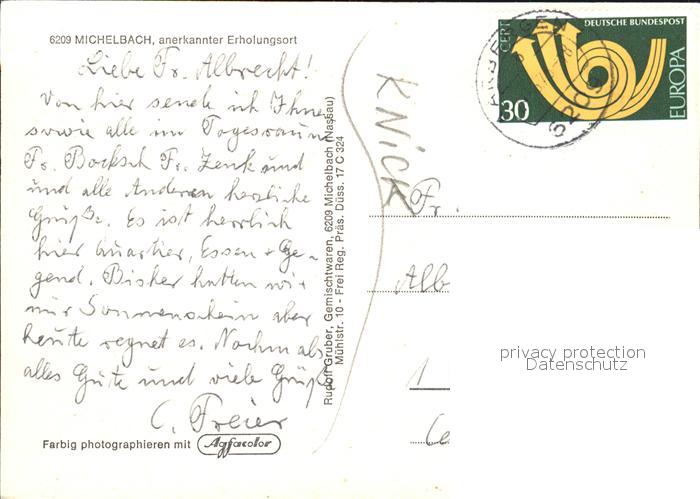 6209 MICHELBACH, anerkannter Erholungsort
Liebe Fr. Albrecht!
Von hier sende ich Ihnen
sowie alle im Tagesraum
Fr. Bocksch Fr. Zenk und
und alle Anderen herzliche
Grüße. Es ist herrlich
hier Quartier, Essen + Ge-
gend. Bisher hatten wir
nur Sonnenschein aber
heute regnet es. Nochmals
alles Gute und viele Grüße
C. Freier
Farbig photographieren mit Agfacolor
Rudolf Gruber, Gemischtwaren, 6209 Michelbach (Nassau)
Mühlstr. 10 - Frei Reg. Präs. Düss. 17 C 324
KNICK
CEPT
DEUTSCHE BUNDESPOST
EUROPA
30
6209
Fr.
Alb
1
privacy protection
Datenschutz